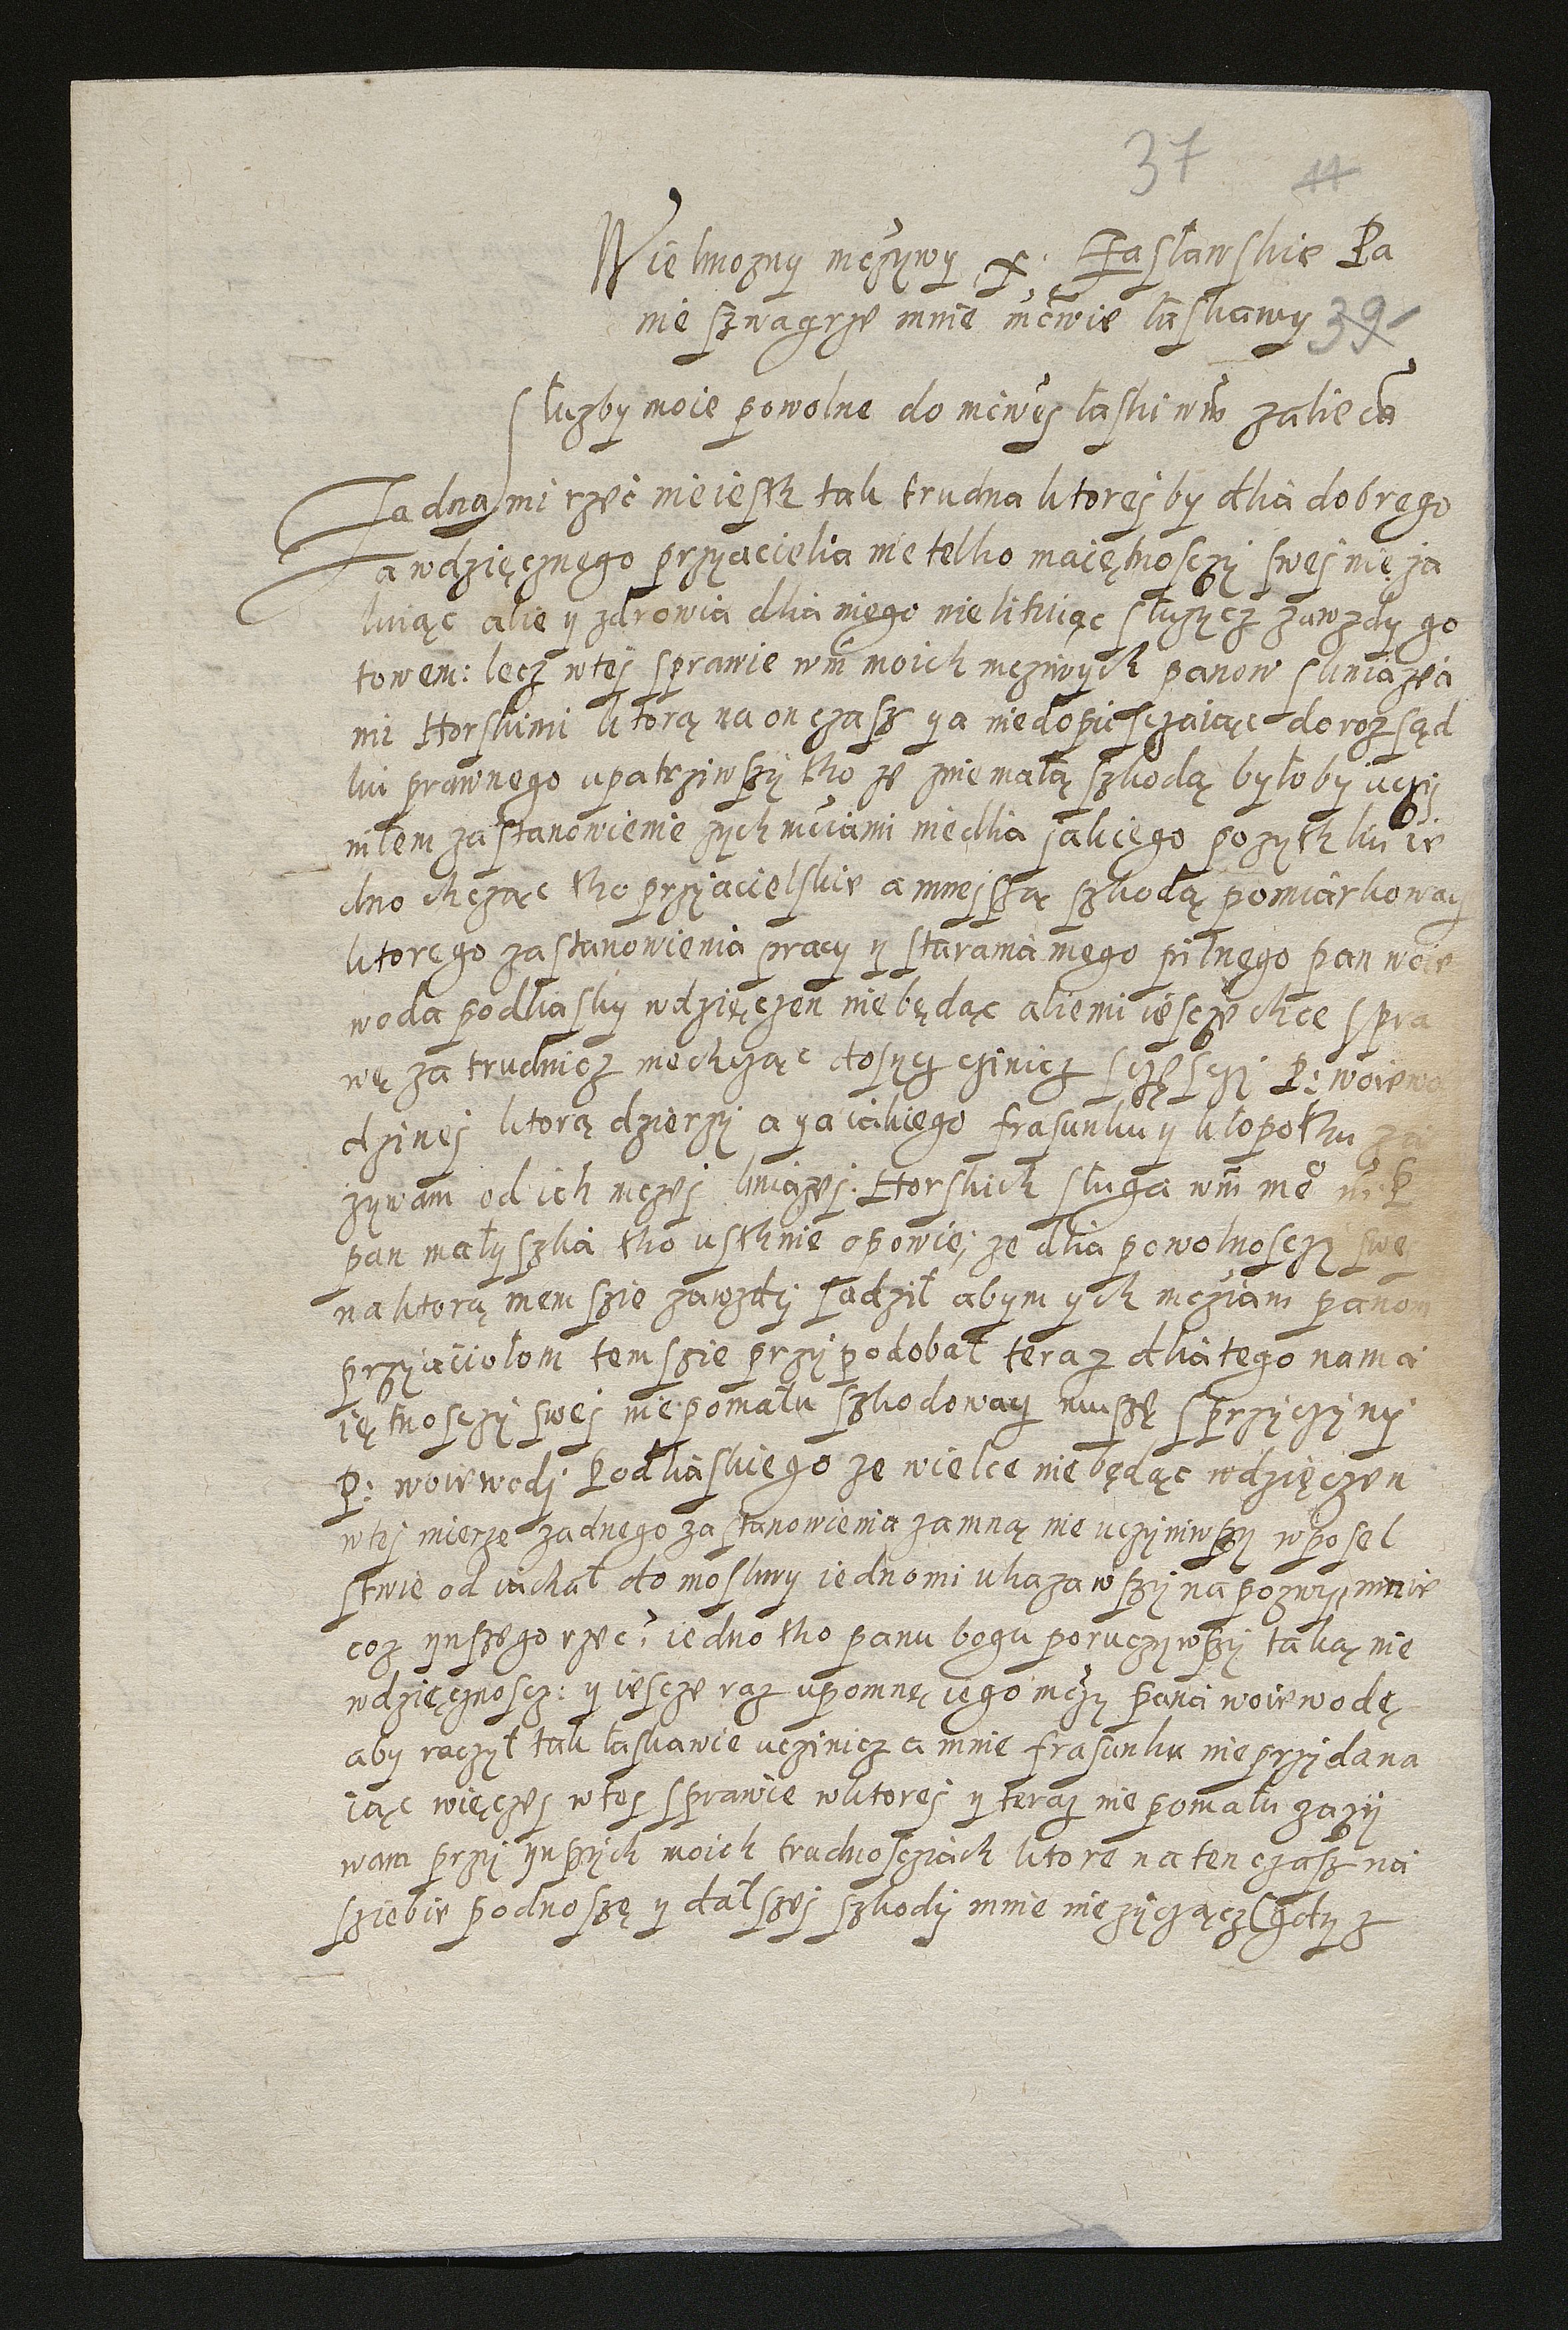 37 11
Wielmozny mczywy X: Zasławskie Pa
nie szwagrze mnie mczwie łaskawy 39
Służby moie powolne do mciwej łaski wm zaliecā
Zadna mi rzec nie iesth tak trudna ktorej by dlia dobrego
a wdzięcznego przyacielia nie telko maiętnosczy swej nię za
łuiąc alie y zdrowia dlia niego nielituiąc słuzycz zawzdy go
towem: lecz wtej sprawie wm moich mcziwych panow skniazia
mi Horskimi ktorą na on czasz ya niedopusczaiąc do rozsąd
ku prawnego upatrziwszy tho ze zniemałą szkodą byłoby uczy
niłem zastanowienie zych mciami niedlia jakiego pozythku ie
dno chcząc tho przyacielskie a mnejszą szkodą pomiarkowacz
ktorego zastanowienia pracy y starania mego pilnego pan woie
woda podliasky wdzięczen niebędąc aliemi iescze chce spra
wę zatrudnicz niechcząc dosycz czinicz sczęsczi P: woiewo
dzinej ktorą dzierzy a ya iakiego frasunku y kłopothu za
zywam od ich mczej kniazej: Horskich sługa wm mo m: P
pan małyszka tho usthnie opowie; ze dlia powolnosczi swej
naktorą mem szie zawzdy sadził abym ych mcziam panom
przyaciołom tem szie przypodobał teraz dliatego nama
iętnosczy swej niepomału szkodowacz muszę sprzyczyny
P: woiewodj Podliaskiego ze wielce niebędąc wdzięczen
wtej mierze zadnego zastanowienia zamną nie uczyniwszy wposel
stwie odiachał do moskwy iednomi ukazawszy napozwy, mnie
coz ynszego rzec? iedno tho panu bogu poruczywszy taką nie
wdzięcznoscz: y iescze raz upomnę iego mczy pana woiewodę
aby raczył tak łaskawie uczinicz a mnie frasunku nie przydana
iąc więczej wtej sprawie wktorej y teraz nie pomału zazy
wam przy ynszych moich trudnosciach ktore na ten czasz na
sziebie podnoszę y dalszej szkody mnie nie zycząc gdy z